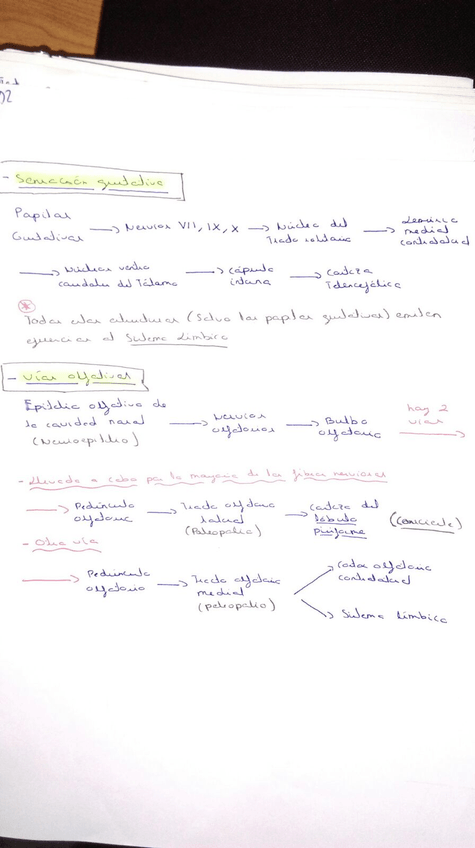 - Sensación gustativa
Papilas Gustativas → Nervios VII, IX, X → Núcleo del Tracto solitario → Lemnisco medial contralateral
→ Núcleo ventro caudales del Tálamo → cápsula interna → corteza Telencefálica
Todas estas estructuras (salvo las papilas gustativas) emiten
eferencias al Sistema Límbico
- Vías olfativas
Epitelio olfativo de la cavidad nasal (Neuroepitelio) → nervios olfatorios → Bulbo olfatorio hay 2 vías →
- Llevada a cabo por la mayoría de las fibras nerviosas
→ Pedúnculo olfatorio → Tracto olfatorio lateral (Paleopalio) → corteza del lóbulo piriforme (consciente)
- Otra vía
→ Pedúnculo olfatorio → Tracto olfatorio medial (paleopalio) → olfatorio contralateral
→ Sistema Límbico